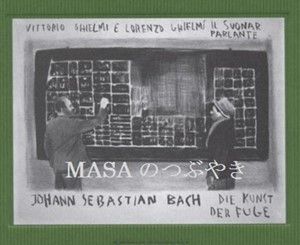 VITTORIO GHIELMI E LORENZO GHIELMI IL SUONAR
PARLANTE
MASAのつぶやき
JOHANN SEBASTIAN BACH DIE KUNST
DER FUGE